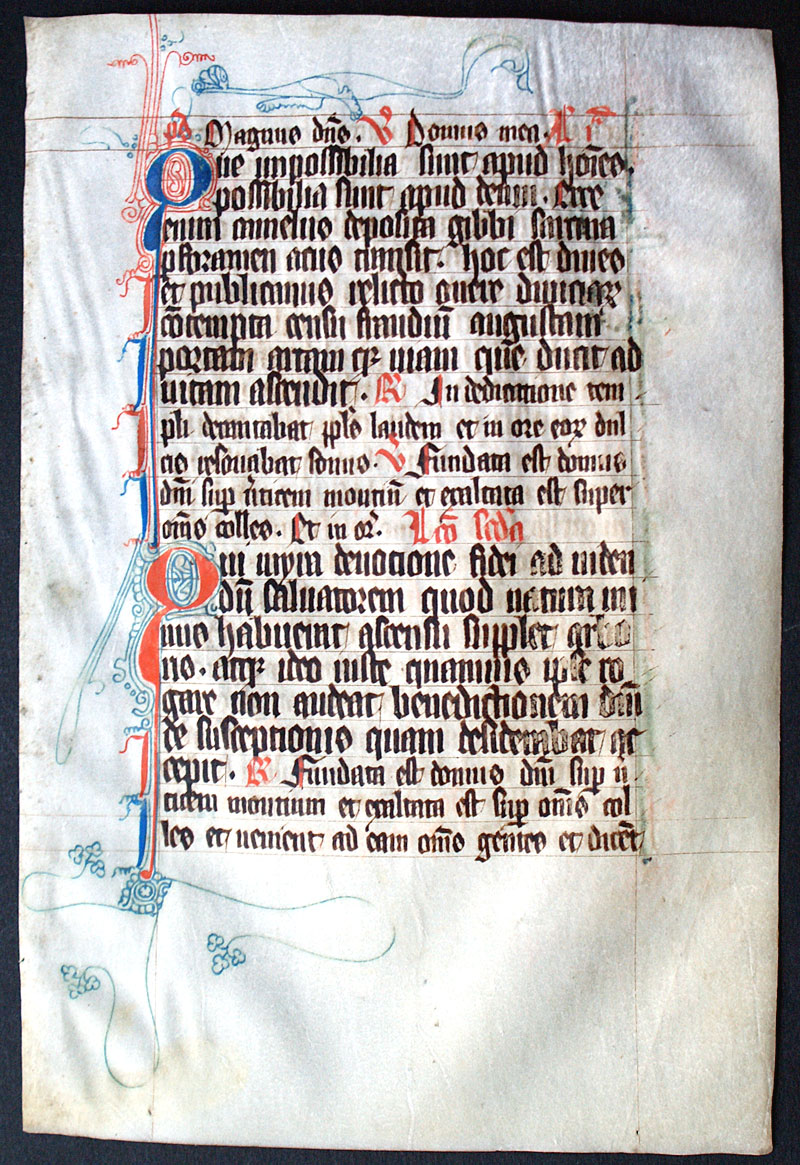 a Magnus dn̄s. V Domus mea. L̄ i
Que impossibilia sunt apud hoīes.
possibilia sunt apud deum. Ecce
enim camelus deposita gibbi sarcina
p foramen acus transit. hoc est dives
et publicanus relicto onere diviciaꝝ
cōtempta censu fraudiū angustam
portam artam qꝫ viam que ducit ad
vitam ascendit. R In dedicatione tem
pli decantabat ppl̄s laudem et in ore eoꝝ dul
cis resonabat sonus. V Fundata est domus
dn̄i sup v̄ticem montiū et exaltata est super
om̄s colles. Et in or̄. Lcō scd̄a
Qui nimia devocione fidei ad viden
dū salvatorem quod natura mi
nus habuerat ascensu supplet arbo
ris. atqꝫ ideo iuste quamvis ipse ro
gare non audeat benedictionem dn̄i
de susceptionis quam desiderabat ac
cepit. R Fundata est domus dn̄i sup v̄
ticem montium et exaltata est sup om̄s col
les et venient ad eam om̄s gentes et dicēt